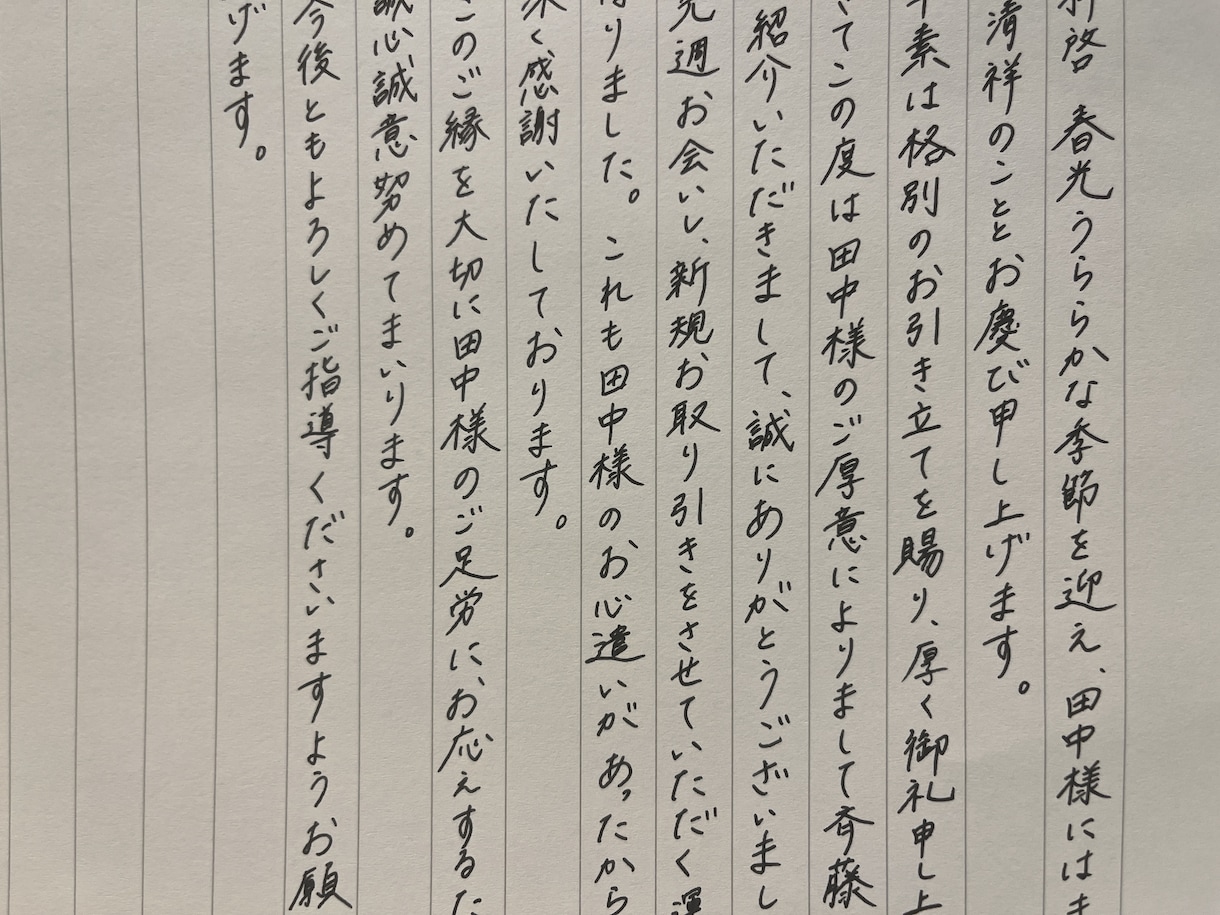 拝啓 春光うららかな季節を迎え、田中様にはま
清祥のこととお慶び申し上げます。
平素は格別のお引き立てを賜り、厚く御礼申し上
さてこの度は田中様のご厚意によりまして斉藤
紹介いただきまして、誠にありがとうございまし
先週お会いし、新規お取り引きをさせていただく運
なりました。これも田中様のお心遣いがあったから
深く感謝いたしております。
このご縁を大切に田中様のご足労に、お応えするた
誠心誠意努めてまいります。
今後ともよろしくご指導くださいますようお願
げます。